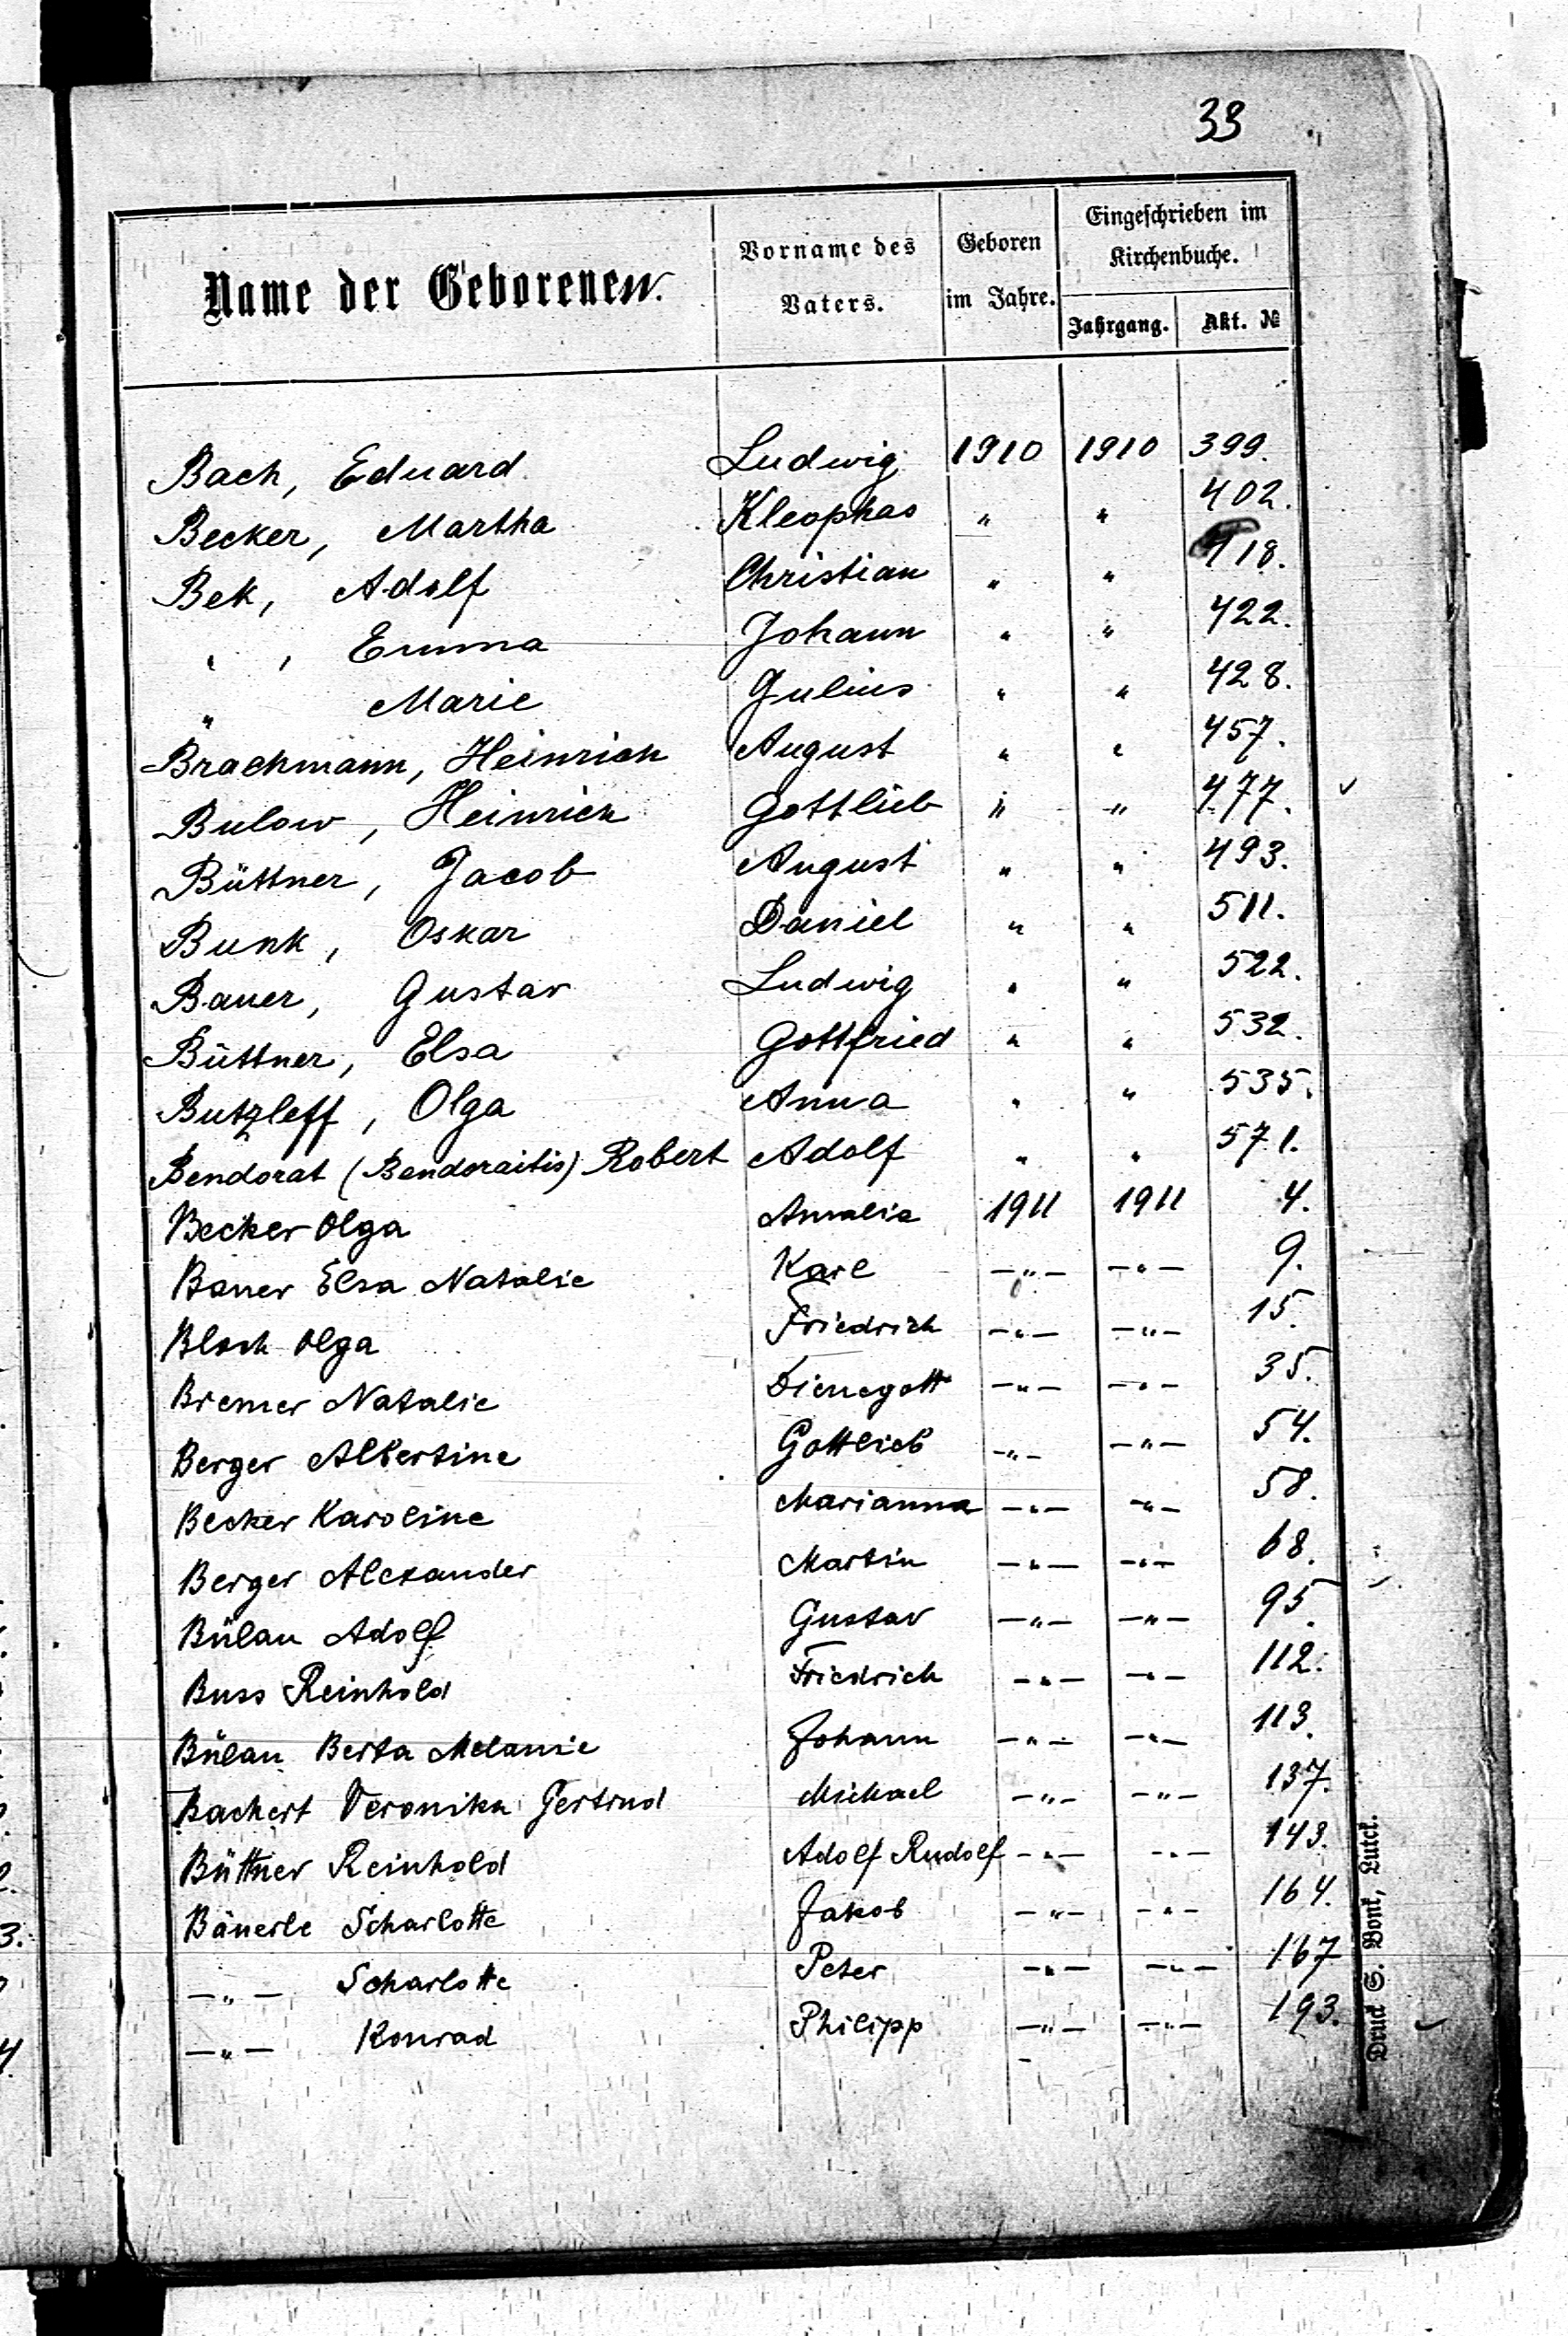 33
Name der Geborenen.
Vorname des Vaters.
Geboren im Jahre.
Eingeschrieben im Kirchenbuche.
Jahrgang.
Akt. №
Bach, Eduard Ludwig 1910 1910 399.
Becker, Martha Kleophas " " 402.
Bek, Adolf Christian " " 418.
" , Emma Johann " " 422.
" Marie Gulius " " 428.
Brachmann, Heinrich August " " 457.
Bulow, Heinrich Gottlieb " " 477.
Büttner, Jacob August " " 493.
Bunk, Oskar Daniel " " 511.
Bauer, Gustav Ludwig " " 522.
Büttner, Elsa Gottfried " " 532.
Butzleff, Olga Anna " " 535.
Bendorat (Bendoraitis) Robert Adolf " " 571.
Becker Olga Amalia 1911 1911 4.
Bauer Elsa Natalie Karl —"— —"— 9.
Bloch Olga Friedrich —"— —"— 15.
Bremer Natalie Dienegott —"— —"— 35.
Berger Albertine Gottlieb —"— —"— 54.
Becker Karoline Marianna —"— —"— 58.
Berger Alexander Martin —"— —"— 68.
Bülau Adolf Gustav —"— —"— 95.
Buss Reinhold Friedrich —"— —"— 112.
Bülau Berta Melanie Johann —"— —"— 113.
Bachert Veronika Gertrud Michael —"— —"— 137.
Büttner Reinhold Adolf Rudolf —"— —"— 143.
Bäuerle Scharlotte Jakob —"— —"— 164.
—"— Scharlotte Peter —"— —"— 167
—"— Konrad Philipp —"— —"— 193.
Druck S. Bonk, Lutck.